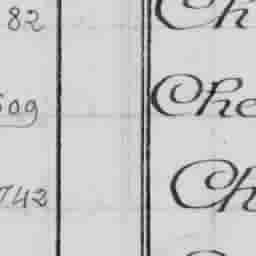 82 Ch
509 Che
742 Ch